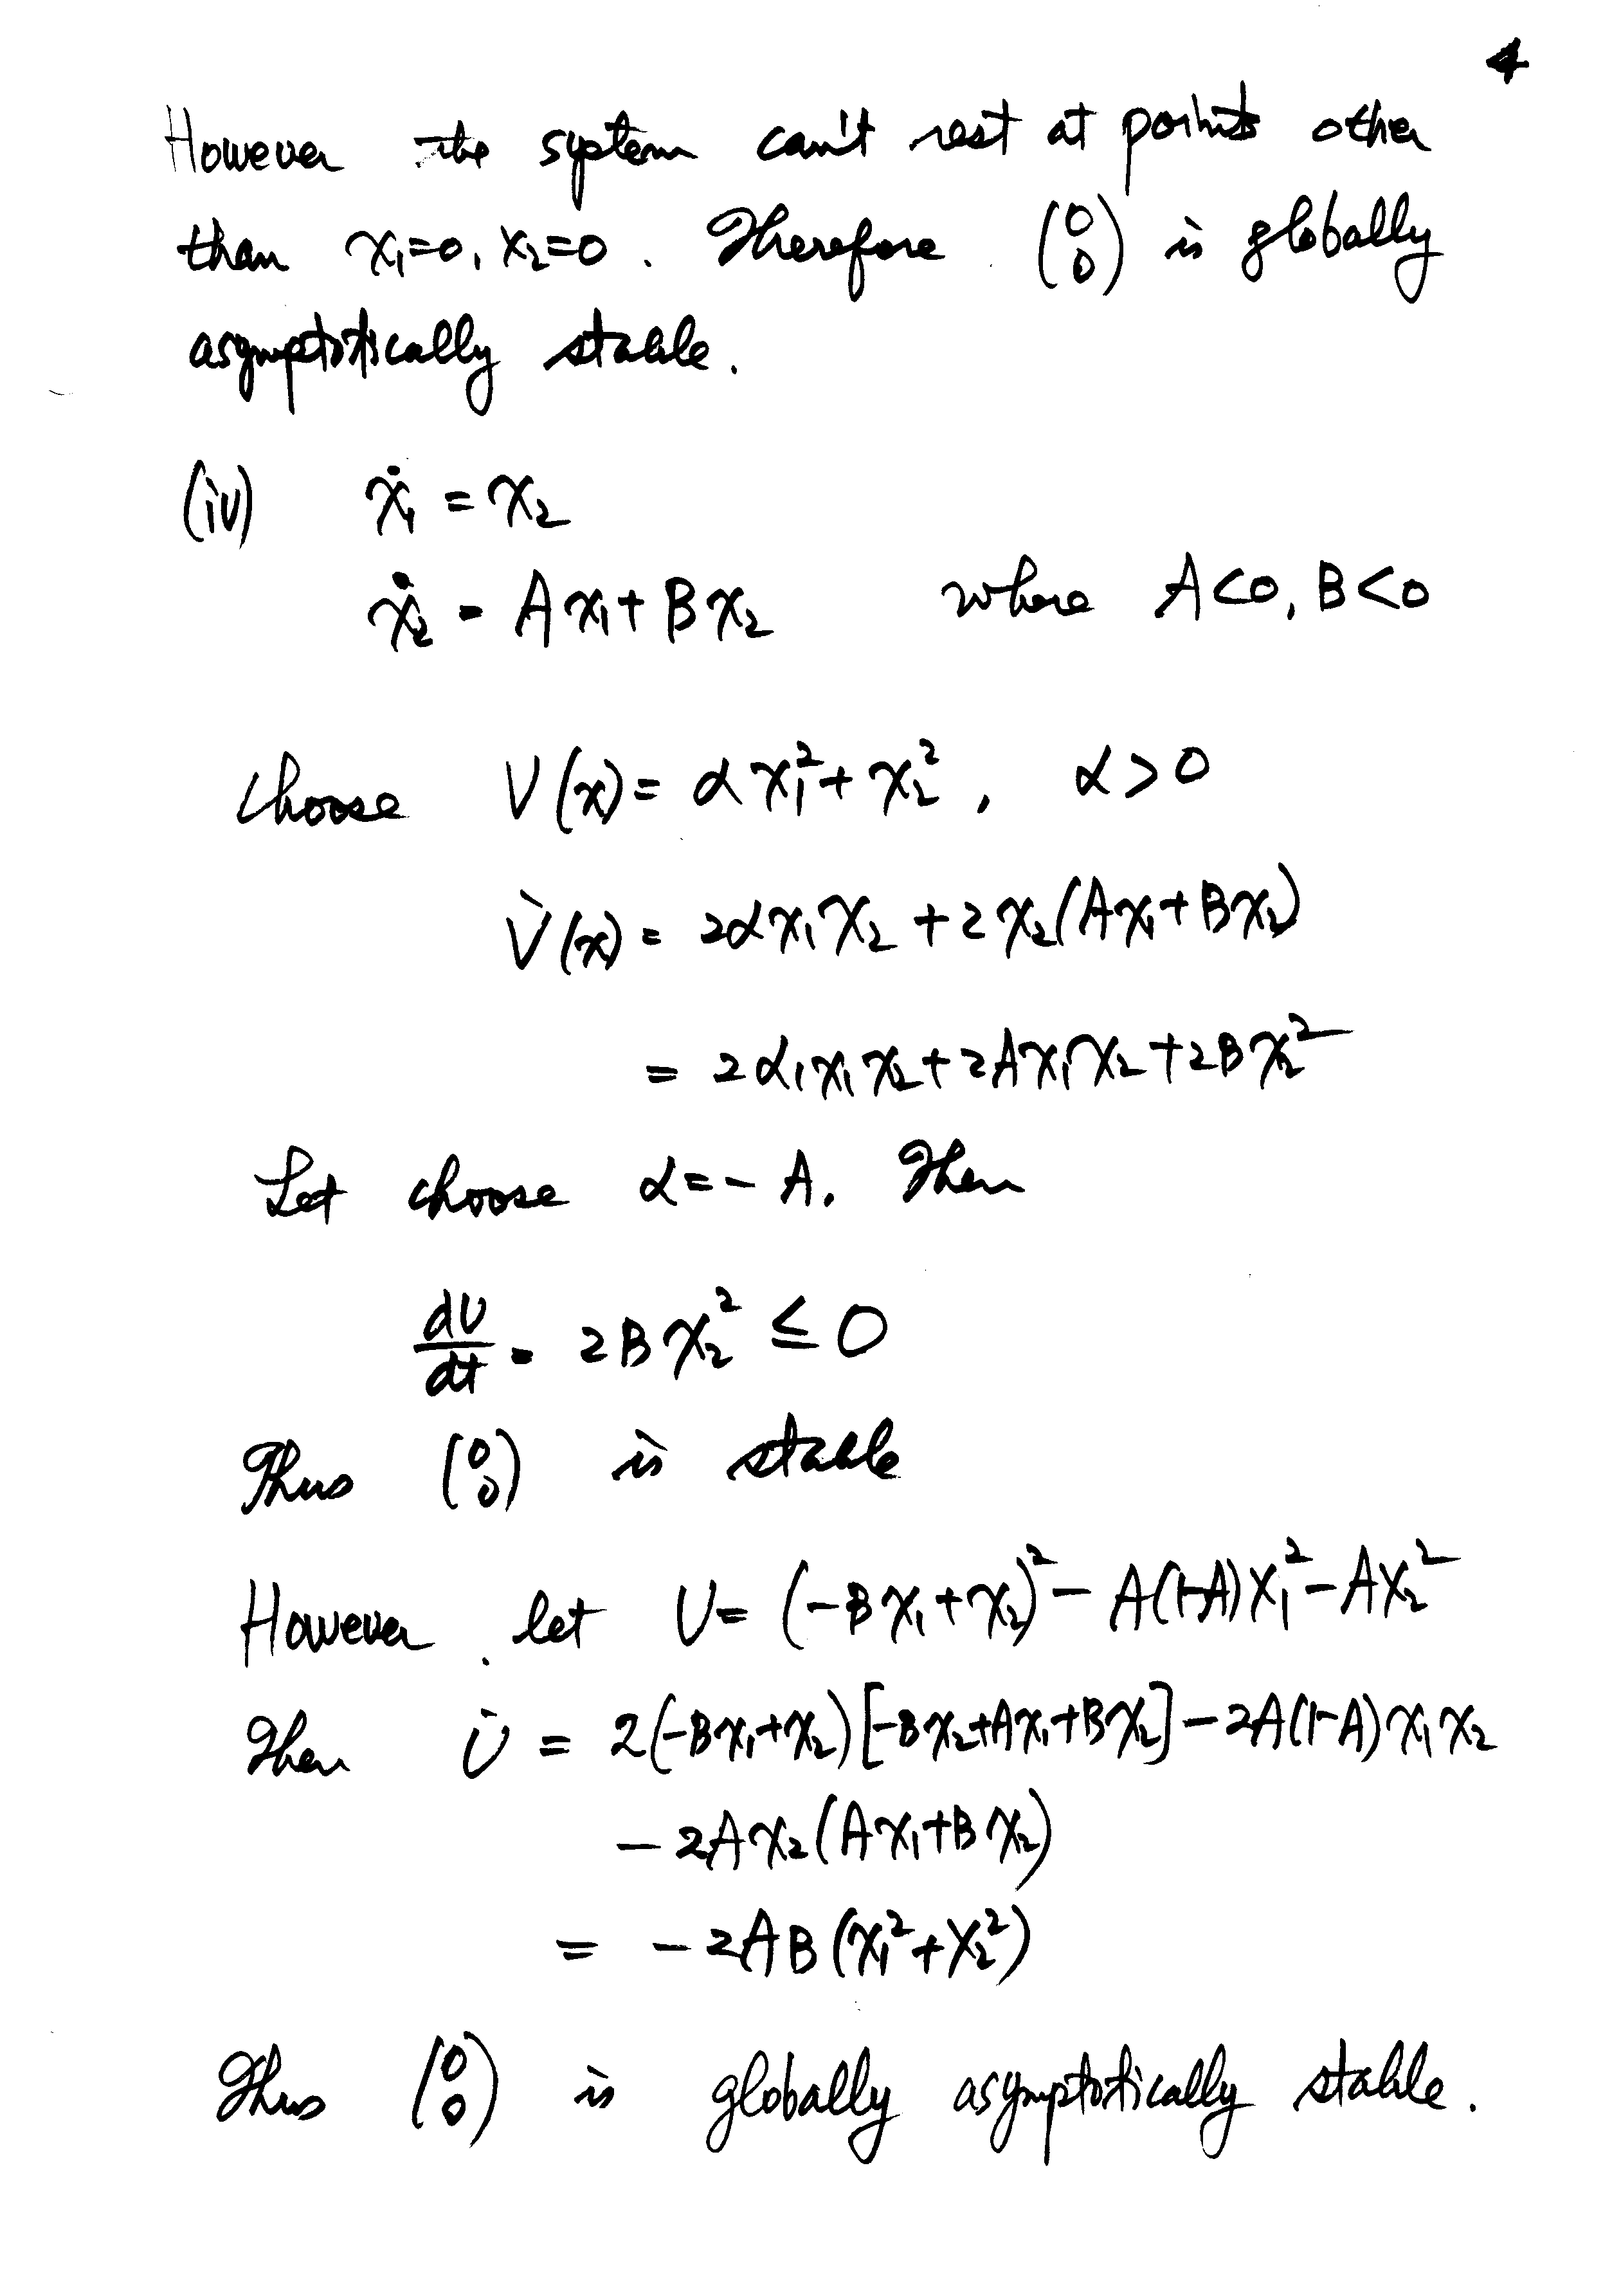 4
However the system can't rest at points other
than x₁=0, x₂=0. Therefore (0 0) is globally
asymptotically stable.
(iv) ẋ₁ = x₂
ẋ₂ = Ax₁ + Bx₂ where A<0, B<0
Choose V(x) = αx₁² + x₂², α>0
V̇(x) = 2αx₁x₂ + 2x₂(Ax₁+Bx₂)
= 2α₁x₁x₂ + 2Ax₁x₂ + 2Bx₂²
Let choose α = -A. Then
dV/dt = 2Bx₂² ≤ 0
Thus (0 0) is stable
However, let V = (-Bx₁+x₂)² - A(1-A)x₁² - Ax₂²
Then V̇ = 2(-Bx₁+x₂)[-Bx₂+Ax₁+Bx₂] - 2A(1-A)x₁x₂
- 2Ax₂(Ax₁+Bx₂)
= -2AB(x₁²+x₂²)
Thus (0 0) is globally asymptotically stable.